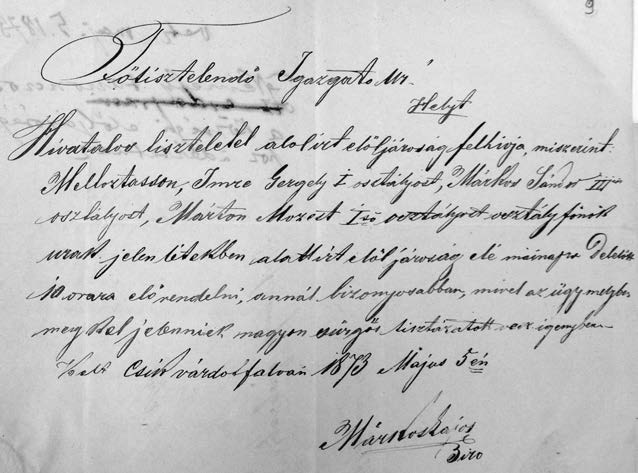 9
Főtisztelendő Igazgató Úr!
Helyt
Hivatalos tisztelettel alolirt elöljároság felhivja, miszerint:
Melloztasson, Imre Gergely I osztályost, Márkos Sándor III
osztályost, Márton Mozest I ső osztályost osztályfőnök
urak jelenlétekben alattirt elöljároság elé mainapra Délelőtt
10 orara elő rendelni, annál bizonyosabban, mivel az ügy melyben
meg kel jelenniek nagyon sürgős tisztázatott vesz igenyben
Kelt Csik várdotfalván 1873 Május 5 én
Márkos Lajos
Biro